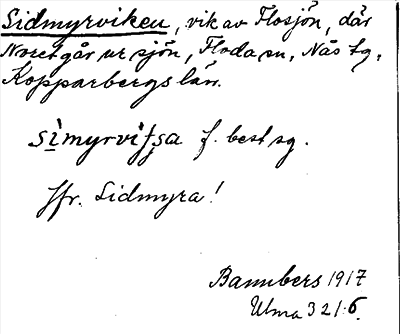 Sidmyrviken, vik av Flosjön, där
Noret går ur sjön, Floda sn, Näs tg,
Kopparbergs län.
sìmyrvitsa f. best sg.
Jfr. Sidmyra!
Bannbers 1917
Ulma 321:6.